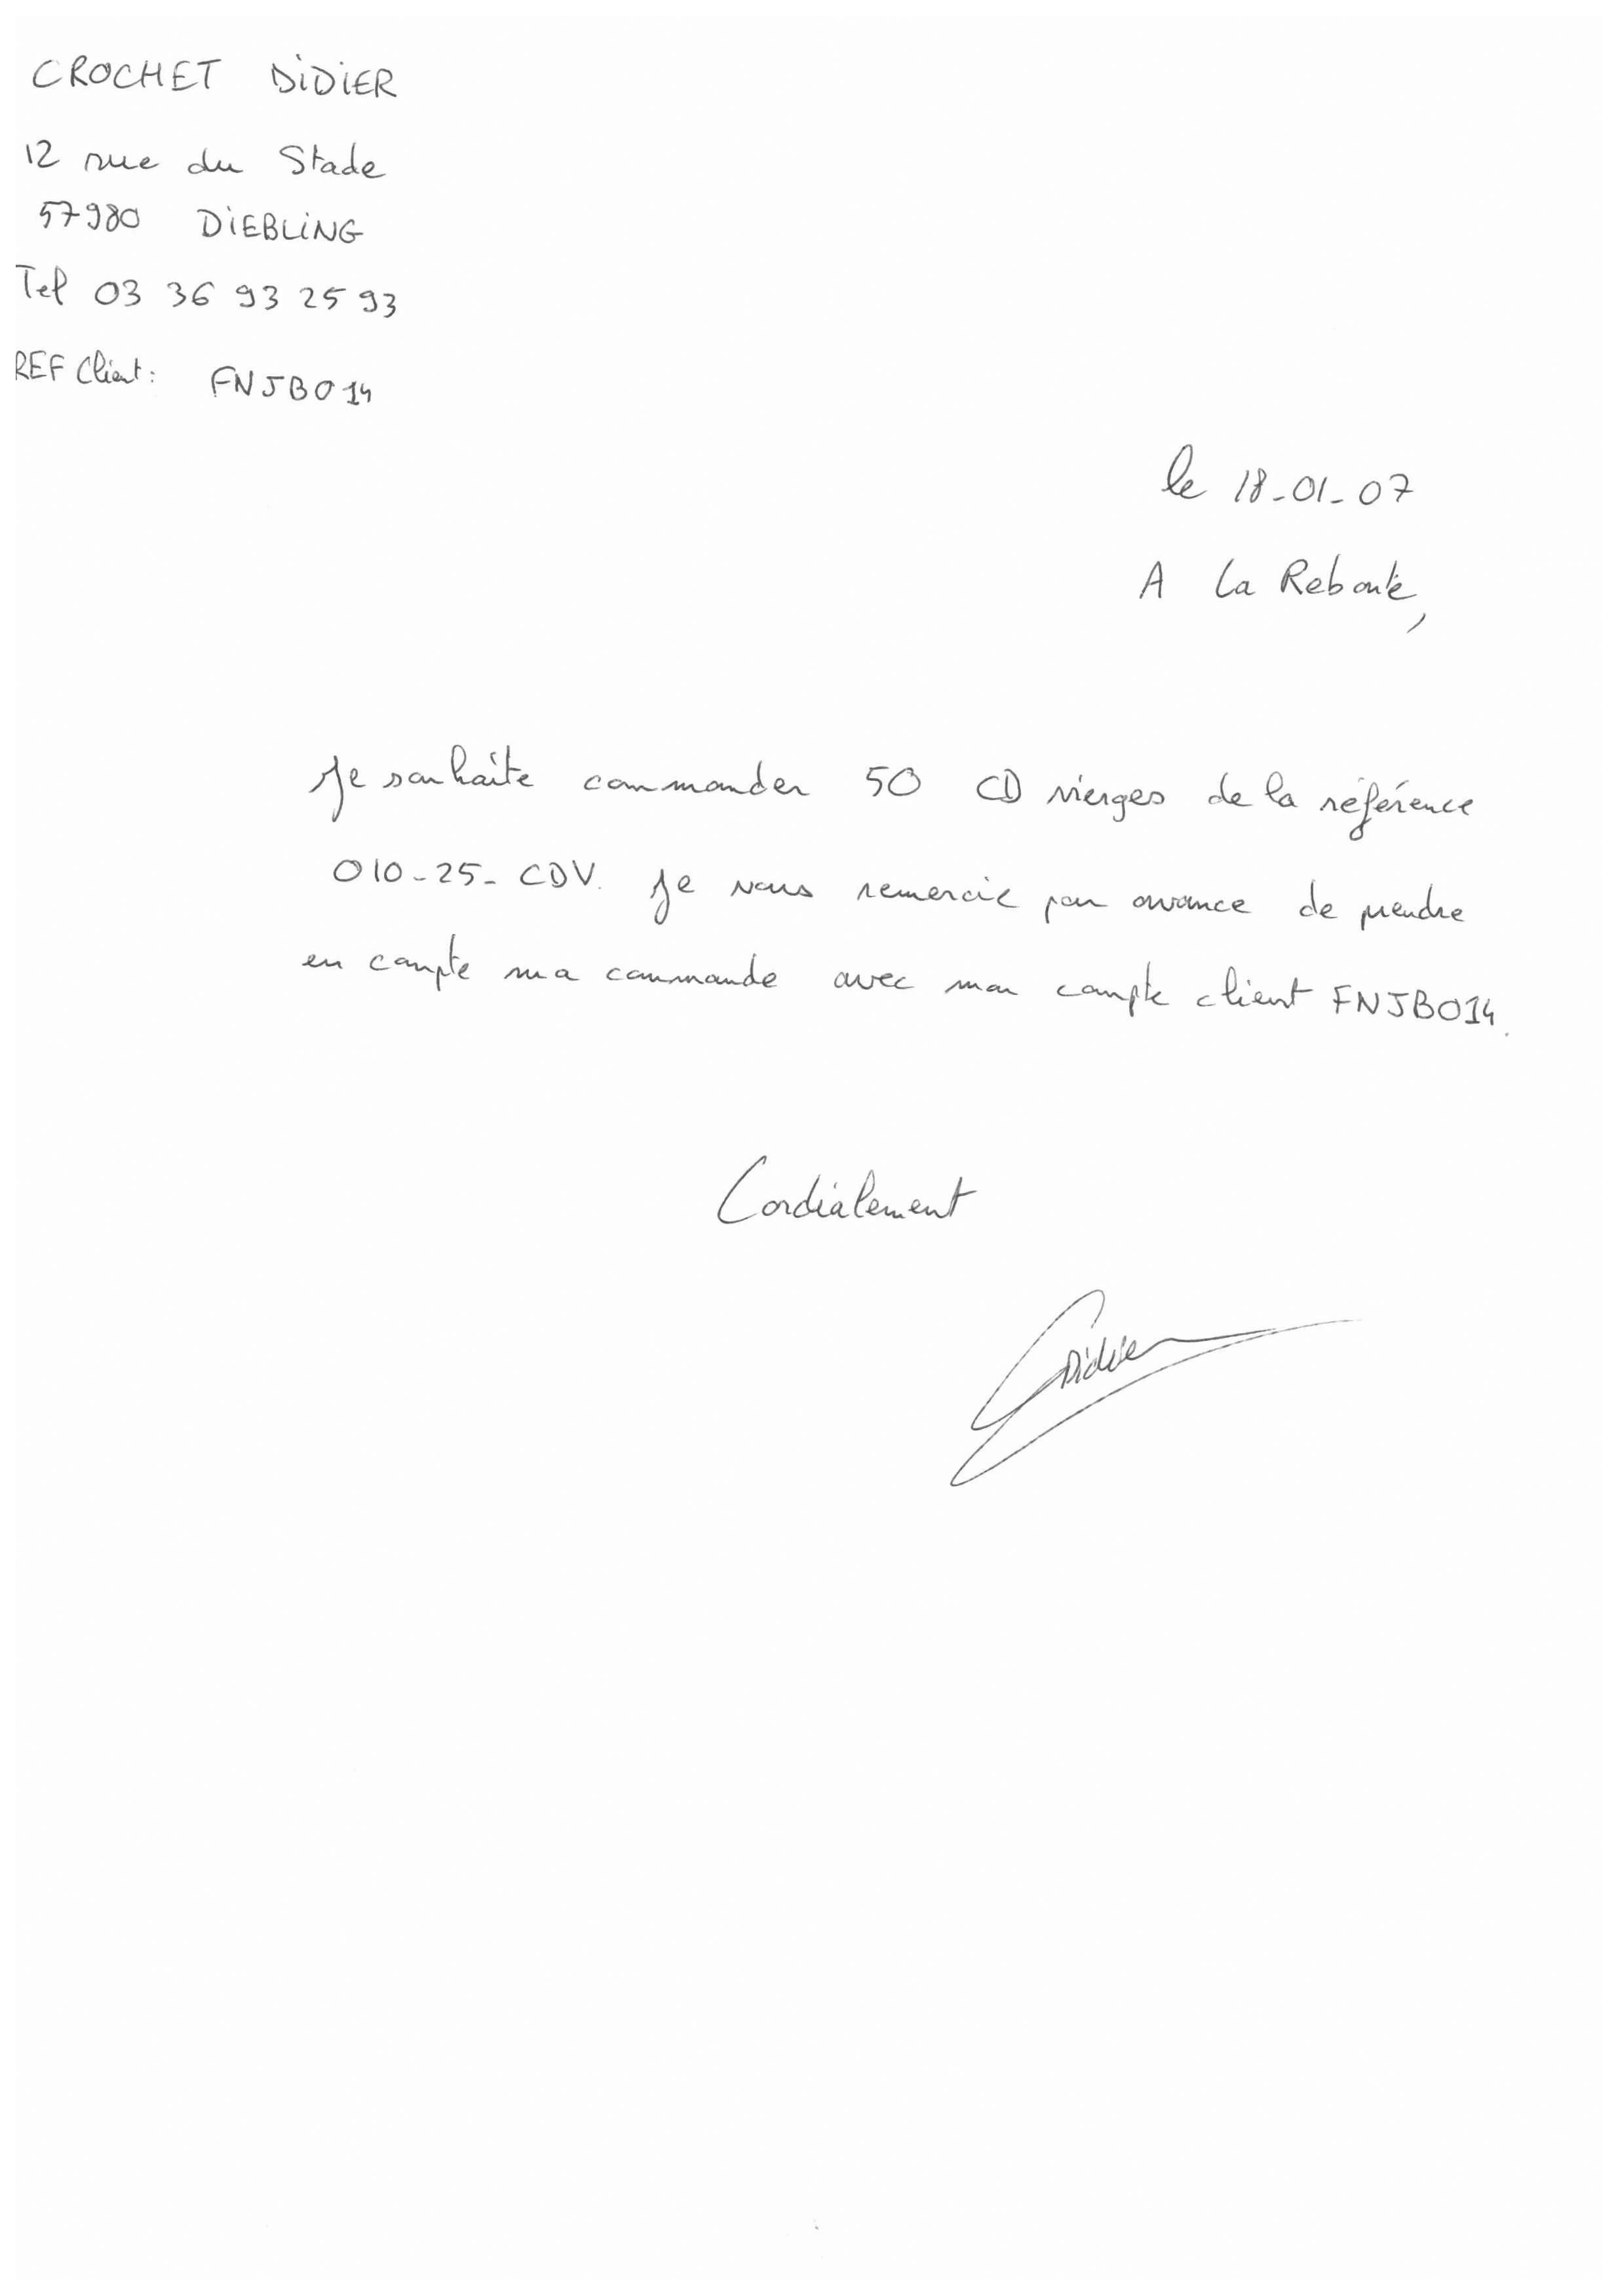 CROCHET DIDIER
12 rue du Stade
57980 DIEBLING
Tel 03 36 93 25 93
REF Client: FNJBO14
le 18-01-07
A La Reboute,
Je souhaite commander 50 CD vierges de la référence
010-25-CDV. Je vous remercie par avance de prendre
en compte ma commande avec mon compte client FNJBO14.
Cordialement
Didier